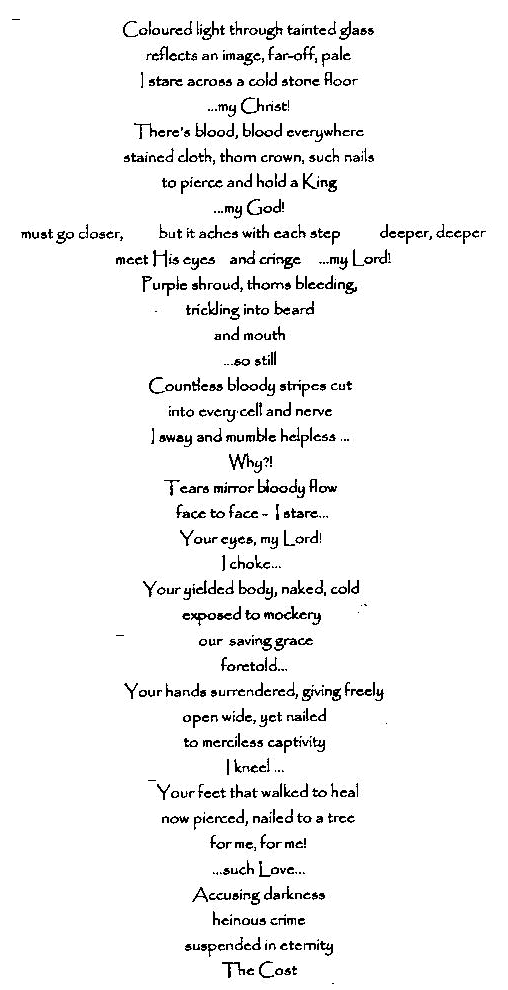 Coloured light through tainted glass
reflects an image, far-off, pale
I stare across a cold stone floor
...my Christ!
There's blood, blood everywhere
stained cloth, thorn crown, such nails
to pierce and hold a King
...my God!
must go closer, but it aches with each step deeper, deeper
meet His eyes and cringe ...my Lord!
Purple shroud, thorns bleeding,
trickling into beard
and mouth
...so still
Countless bloody stripes cut
into every cell and nerve
I sway and mumble helpless ...
Why?!
Tears mirror bloody flow
face to face - I stare...
Your eyes, my Lord!
I choke...
Your yielded body, naked, cold
exposed to mockery
our saving grace
foretold...
Your hands surrendered, giving freely
open wide, yet nailed
to merciless captivity
I kneel ...
Your feet that walked to heal
now pierced, nailed to a tree
for me, for me!
...such Love...
Accusing darkness
heinous crime
suspended in eternity
The Cost